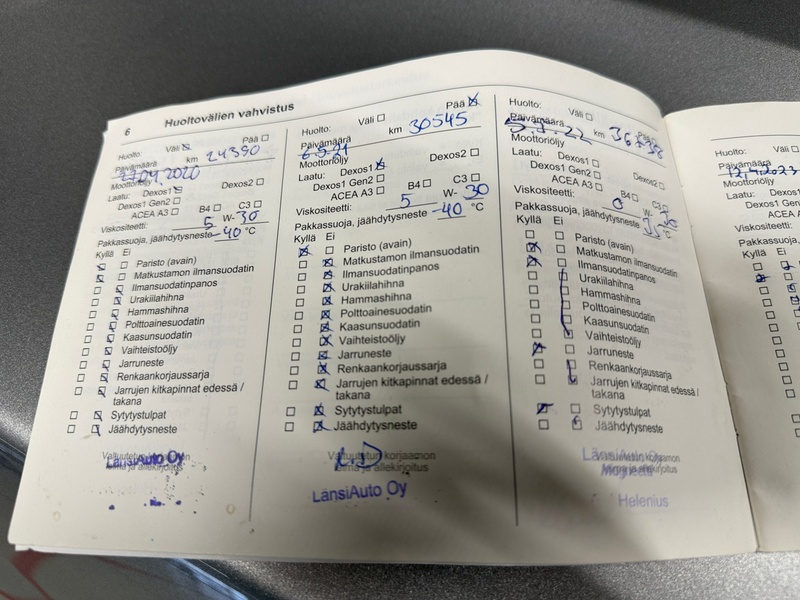 6
Huoltovälien vahvistus
Huolto: Väli Pää
Päivämäärä
27.04.2020 km 24390
Moottoriöljy
Laatu: Dexos1
Dexos1 Gen2
ACEA A3 B4 C3
Viskositeetti: 5 W- 30
Pakkassuoja, jäähdytysneste -40 °C
Kyllä Ei
Paristo (avain)
Matkustamon ilmansuodatin
Ilmansuodatinpanos
Urakiilahihna
Hammashihna
Polttoainesuodatin
Kaasunsuodatin
Vaihteistoöljy
Jarruneste
Renkaankorjaussarja
Jarrujen kitkapinnat edessä /
takana
Sytytystulpat
Jäähdytysneste
LänsiAuto Oy
Huolto: Väli Pää
Päivämäärä km 30545
Moottoriöljy
Laatu: Dexos1 Dexos2
Dexos1 Gen2
ACEA A3 B4 C3
Viskositeetti: 5 W- 30
Pakkassuoja, jäähdytysneste -40 °C
Kyllä Ei
Paristo (avain)
Matkustamon ilmansuodatin
Ilmansuodatinpanos
Urakiilahihna
Hammashihna
Polttoainesuodatin
Kaasunsuodatin
Vaihteistoöljy
Jarruneste
Renkaankorjaussarja
Jarrujen kitkapinnat edessä /
takana
Sytytystulpat
Jäähdytysneste
Valtuutetun korjaamon
leima ja allekirjoitus
LänsiAuto Oy
Huolto: Väli Pää
Päivämäärä km
Moottoriöljy
Laatu: Dexos1 Dexos2
Dexos1 Gen2
ACEA A3 B4 C3
Viskositeetti: 0 W-
Pakkassuoja, jäähdytysneste °C
Kyllä Ei
Paristo (avain)
Matkustamon ilmansuodatin
Ilmansuodatinpanos
Urakiilahihna
Hammashihna
Polttoainesuodatin
Kaasunsuodatin
Vaihteistoöljy
Jarruneste
Renkaankorjaussarja
Jarrujen kitkapinnat edessä /
takana
Sytytystulpat
Jäähdytysneste
LänsiAuto Oy
Helenius
Huolto: Väli
Päivämäärä
12.4.2023
Moottoriöljy
Laatu: Dexos1
Dexos1
ACEA
Viskositeetti:
Pakkassuoja,
Kyllä Ei